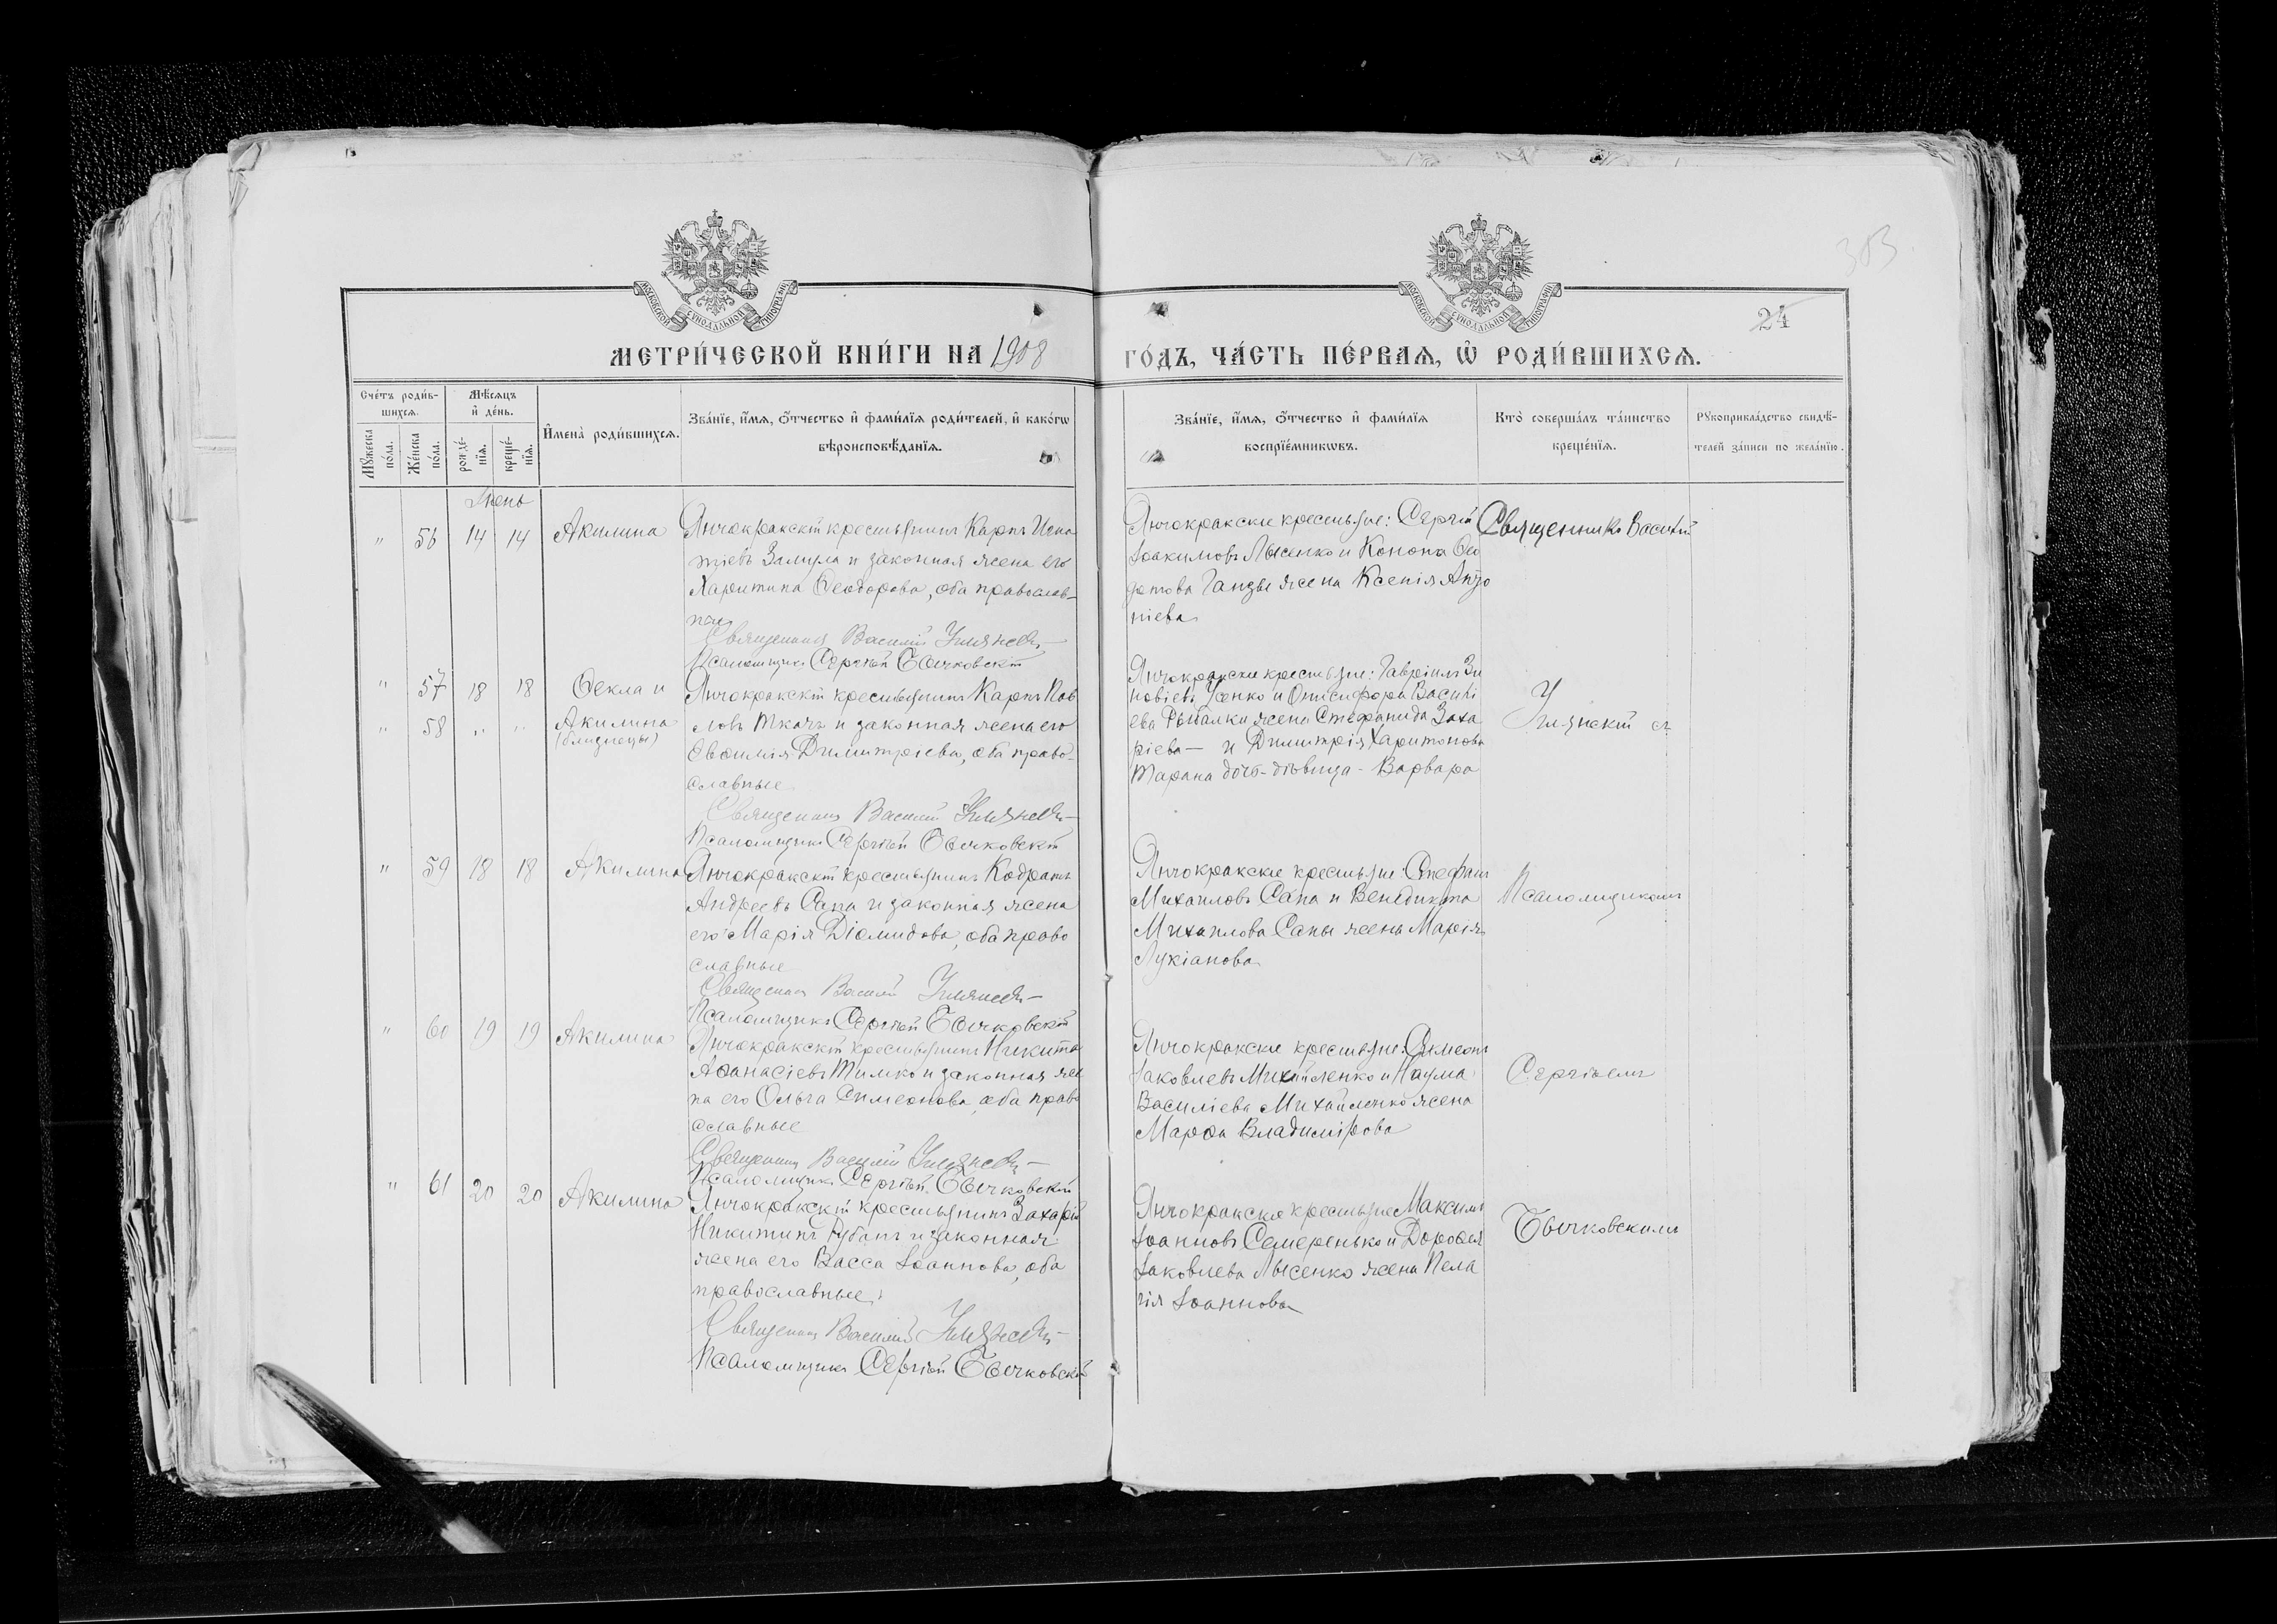 303
24
МОСКОВСКОЙ СѴНОДАЛЬНОЙ ТИПОГРАФІИ
МОСКОВСКОЙ СѴНОДАЛЬНОЙ ТИПОГРАФІИ
МЕТРИ́ЧЕСКОЙ КНИ́ГИ НА 1908
ГО́ДЪ, ЧА́СТЬ ПЕ́РВАѦ, Ѡ҆ РОДИ́ВШИХСѦ.
Сче́тъ роди́в-
шихсѧ.
Мѣ́сѧцъ
и҆ де́нь.
Мꙋ́жеска
по́ла.
Же́нска
по́ла.
рожде́-
нїѧ.
креще́-
нїѧ.
И҆мена̀ роди́вшихсѧ.
Зва́нїе, и҆́мѧ, ѻ҆́тчество и҆ фами́лїѧ роди́телей, и҆ како́гѡ
вѣроисповѣ́данїѧ.
Зва́нїе, и҆́мѧ, ѻ҆́тчество и҆ фами́лїѧ
воспрїе́мникѡвъ.
Кто̀ соверша́лъ та́инство
креще́нїѧ.
Рꙋкоприкла́дство свидѣ́-
телей за́писи по жела́нїю.
Іюнь
" 56 14 14 Акилина
Янчокракскій крестьянинъ Карпъ Игна
тіевъ Замула и законная жена его
Харитина Ѳеодорова, оба православ-
ные
Священникъ Василій
Псаломщикъ Сергѣй Бычковскій
Янчокракскіе крестьяне: Сергій
Іоакимовъ Лысенко и Конона Ѳео
детова Ганзы жена Ксенія Анто
ніева
Священникъ Василій
" 57 18 18 Ѳекла и
" 58 " " Акилина
(близнецы)
Янчокракскій крестьянинъ Карпъ Пав
ловъ Ткачъ и законная жена его
Евѳимія Димитріева, оба право-
славные
Священникъ Василій
Псаломщикъ Сергѣй Бычковскій
Янчокракскіе крестьяне: Гавріилъ Зи
новіевъ Усенко и Онисифора Василі
ева Рыбалки жена Стефанида Заха
ріева — и Димитрія Харитонова
Тарана дочь-дѣвица - Варвара
съ
" 59 18 18 Акилина
Янчокракскій крестьянинъ Кодратъ
Андреевъ Сапа и законная жена
его Марія Діомидова, оба право
славные
Священникъ Василій
Псаломщикъ Сергѣй Бычковскій
Янчокракскіе крестьяне: Стефанъ
Михаиловъ Сапа и Венедикта
Михаилова Сапы жена Марія
Лукіанова
Псаломщикомъ
" 60 19 19 Акилина
Янчокракскій крестьянинъ Никита
Аѳанасіевъ Тимко и законная же
на его Ольга Симеонова, оба право
славные
Священникъ Василій
Псаломщикъ Сергѣй Бычковскій
Янчокракскіе крестьяне: Симеонъ
Іаковлевъ Михайленко и Наума
Василіева Михайленко жена
Марѳа Владимірова
Сергіемъ
" 61 20 20 Акилина
Янчокракскій крестьянинъ Захарій
Никитинъ Рубанъ и законная
жена его Васса Іоаннова, оба
православные
Священникъ Василій
Псаломщикъ Сергѣй Бычковскій
Янчокракскіе крестьяне Максимъ
Іоанновъ Семеренько и Дороѳея
Іаковлева Лысенко жена Пела
гія Іоаннова
Бычковскимъ